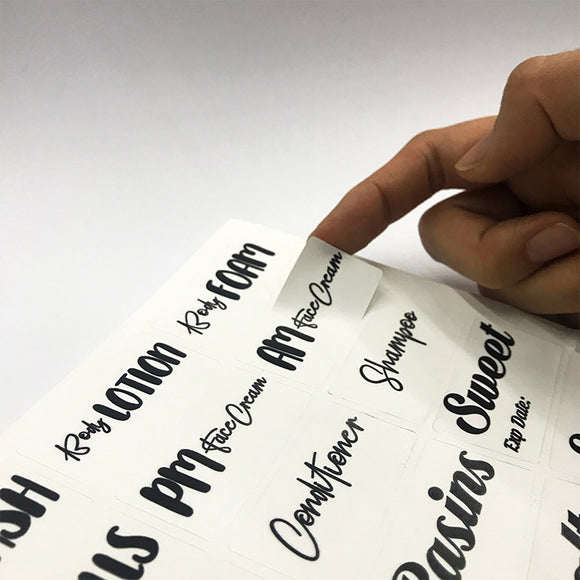 Body FOAM
AM Face Cream
Body LOTION
PM Face Cream
Shampoo
Conditioner
Sweet
Exp Date: